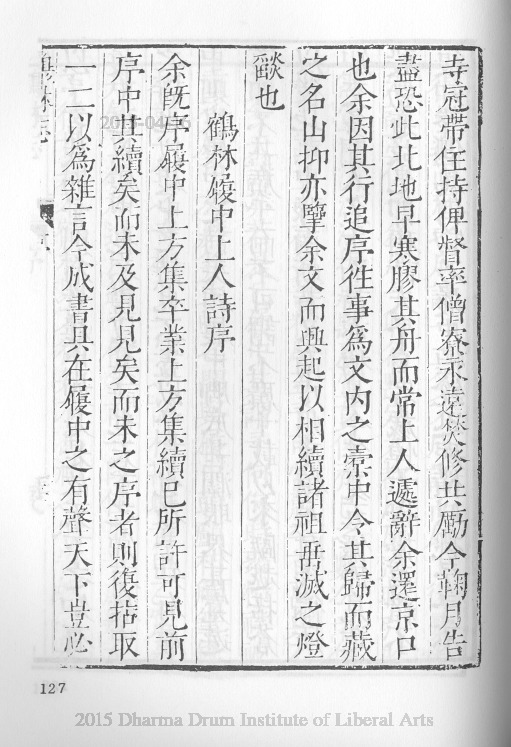 寺冠帶住持俾督率僧寮永遠焚修共勵今鞠月告
盡恐此北地早寒膠其舟而常上人遽辭余還京口
也余因其行追序徃事爲文内之橐中令其歸而藏
之名山抑亦擎余文而興起以相續諸祖再滅之燈
燄也
鶴林履中上人詩序
余旣序履中上方集卒業上方集續巳所許可見前
序中其續矣而未及見見矣而未之序者則復拈取
一二以爲雜言今成書具在履中之有聲天下豈必
127
2015 Dharma Drum Institute of Liberal Arts